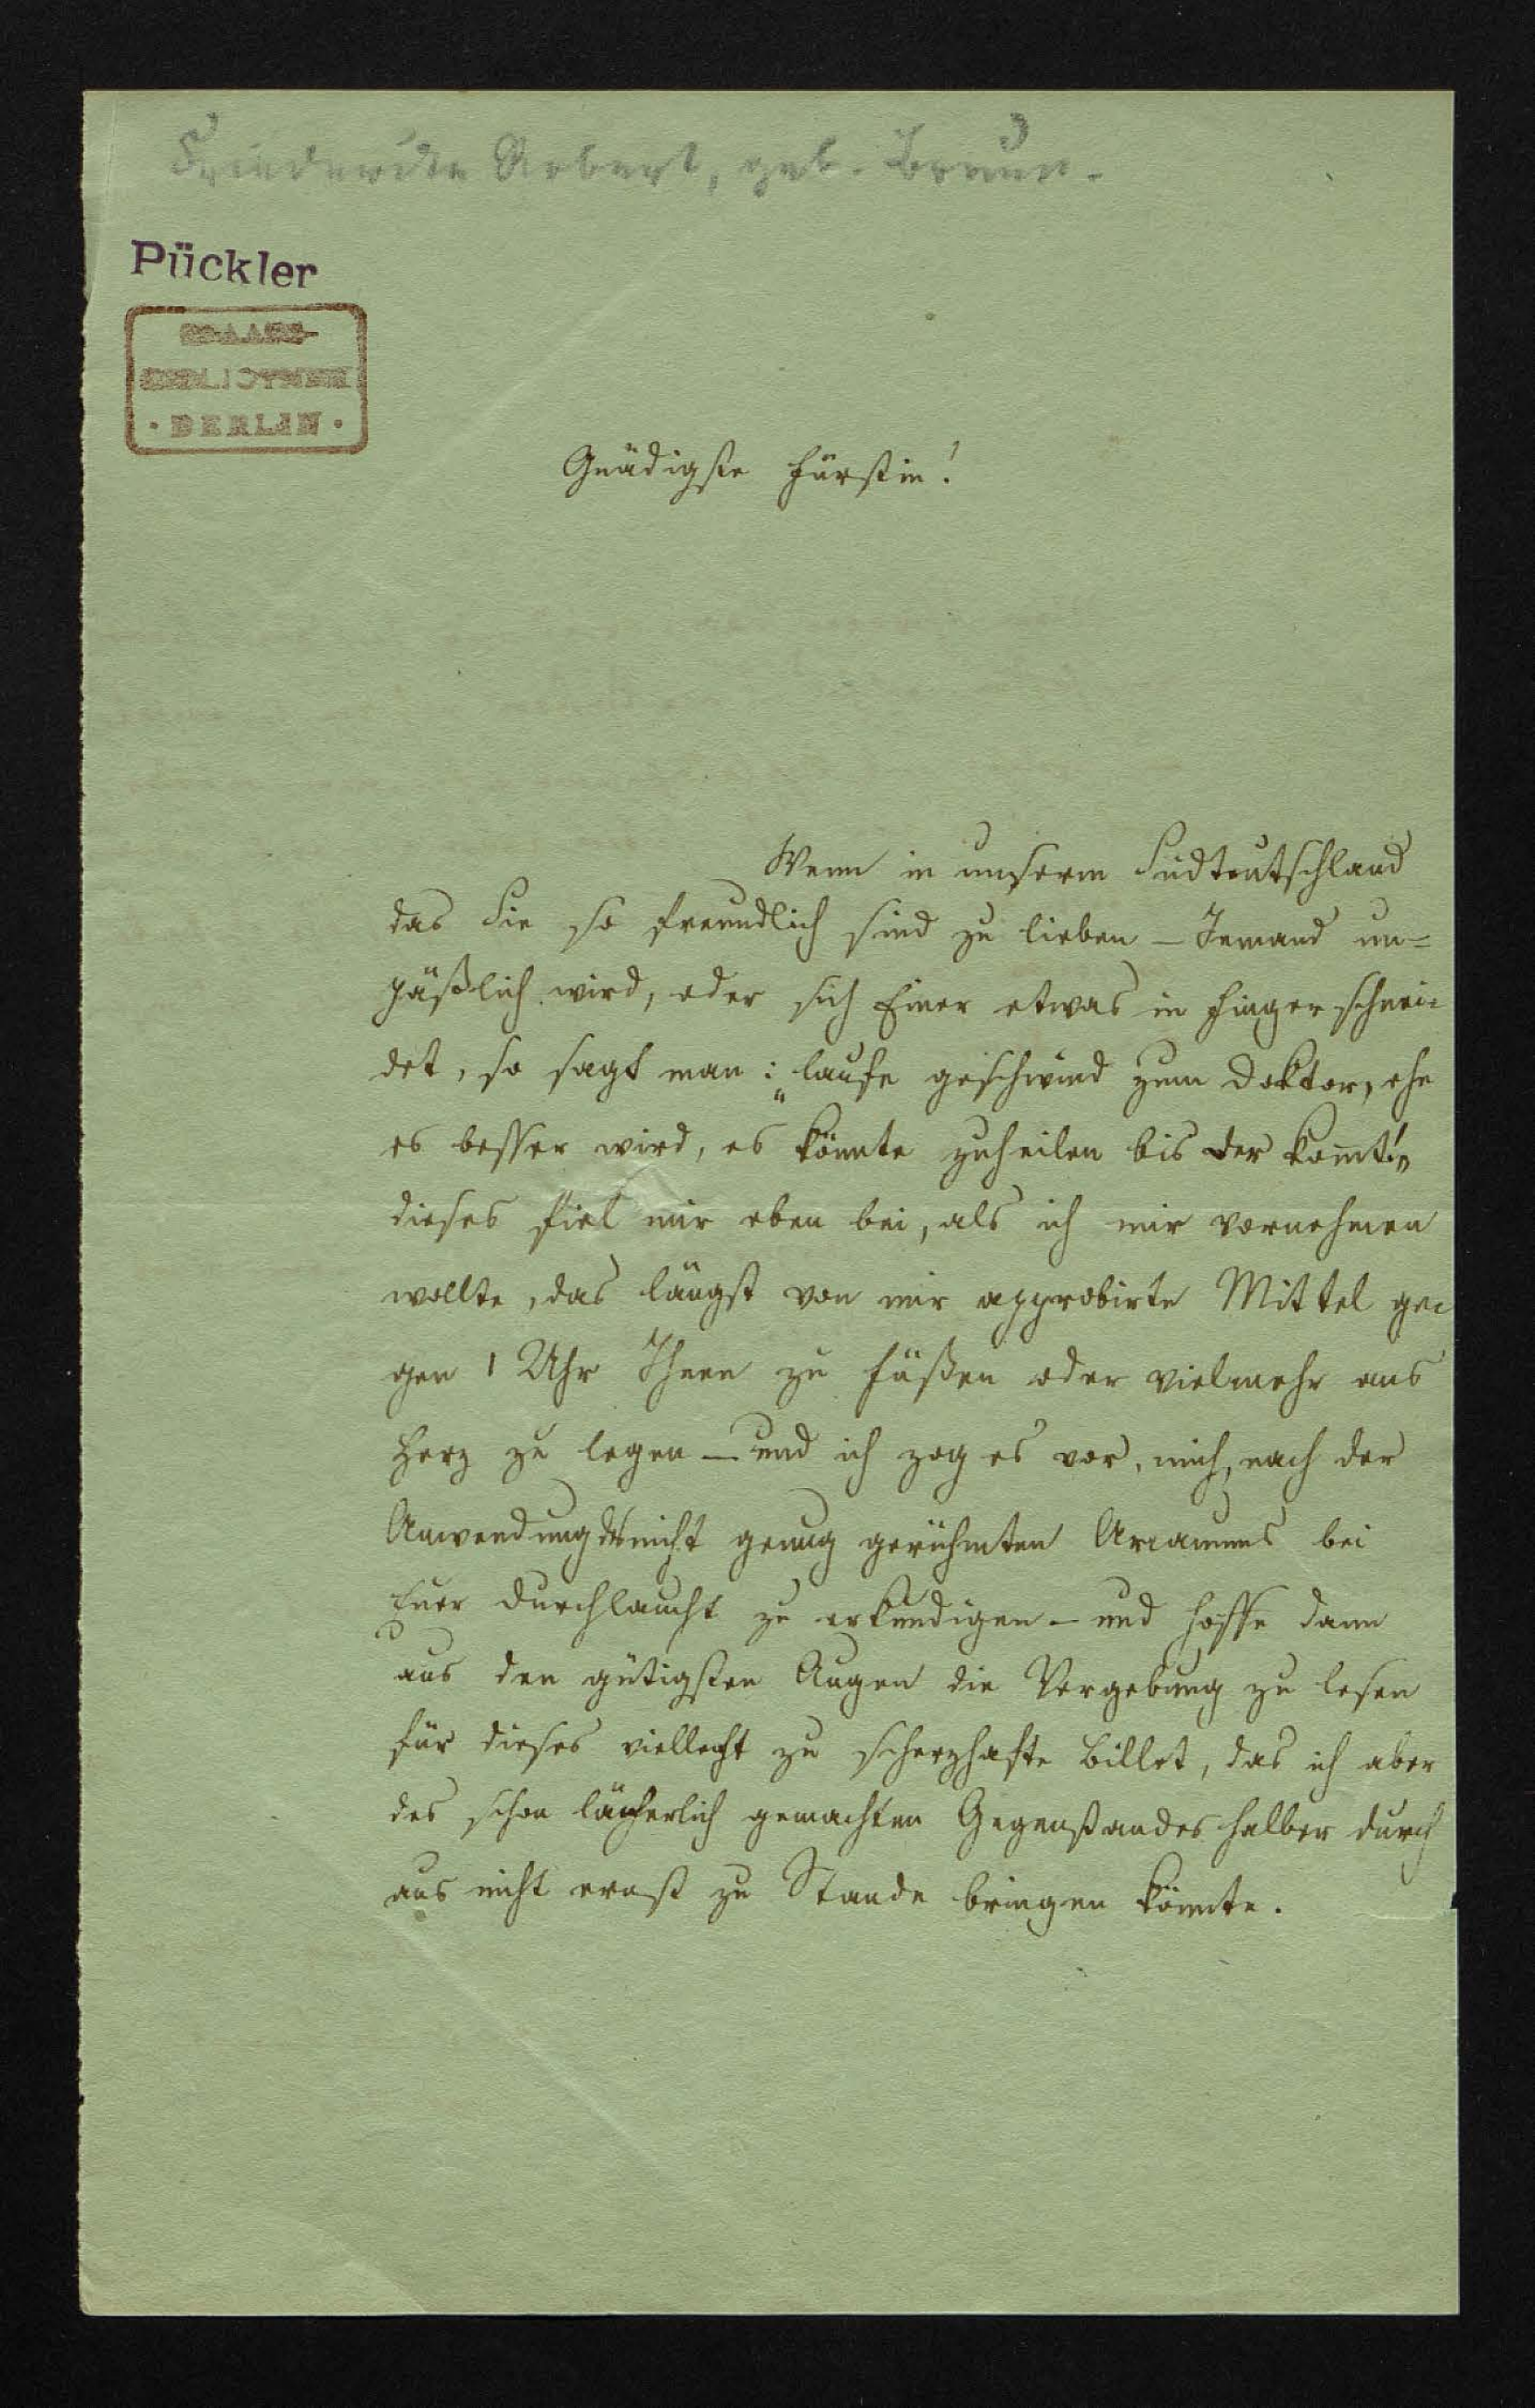 Friederike Robert, geb. Braun.
Pückler
STAATS-
BIBLIOTHEK
• BERLIN •
Gnädigste Fürstin!
Wenn in unserm Südteutschland
das Sie so freundlich sind zu lieben – Jemand un=
päßlich wird, oder sich Einer etwas in Finger schnei=
det, so sagt man: „laufe geschwind zum Doktor, ehe
es besser wird, es könnte zuheilen bis der komt!"
dieses fiel mir eben bei, als ich mir vornehmen
wollte, das längst von mir approbirte Mittel ge=
gen 1 Uhr Ihnen zu Füßen oder vielmehr ans
Herz zu legen – und ich zog es vor, mich, nach der
Anwendung des nicht genug gerühmten Arcanums bei
Euer Durchlaucht zu erkundigen – und hoffe dann
aus den gütigsten Augen die Vergebung zu lesen
für dieses viellecht zu scherzhafte Billet, das ich aber
des schon lächerlich gemachten Gegenstandes halber durch
aus nicht ernst zu Stande bringen könnte.